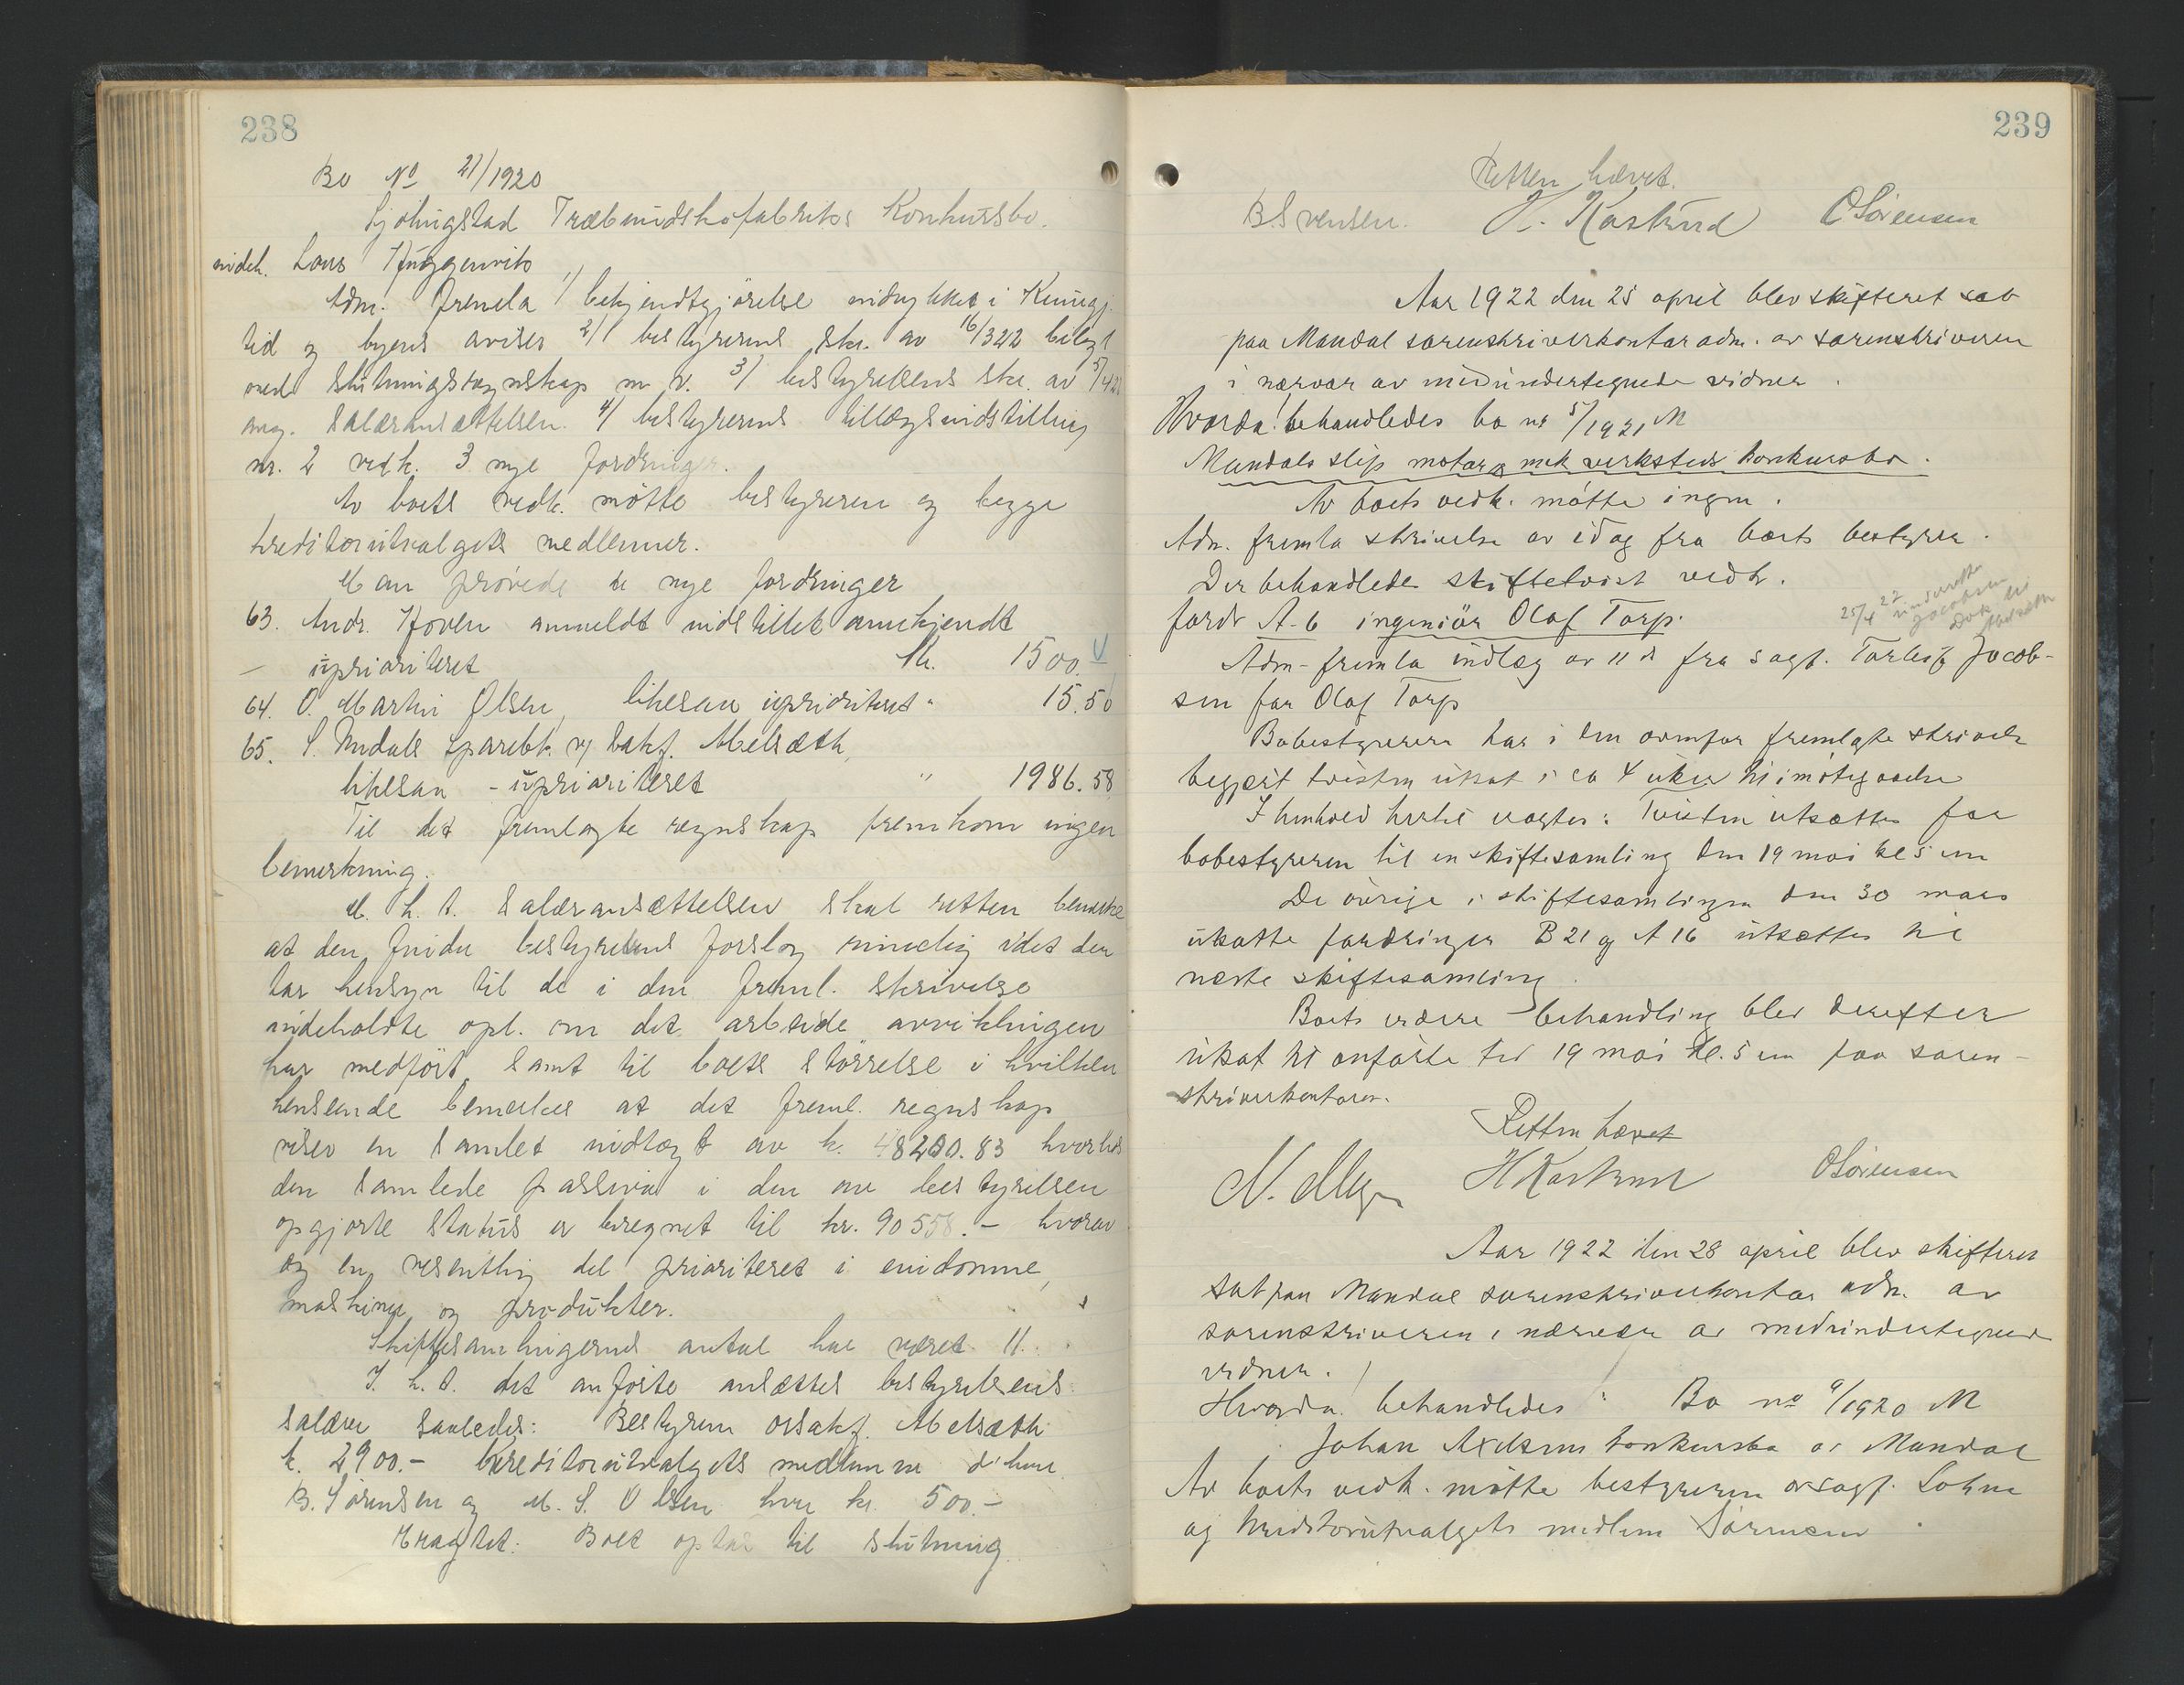 238
Bo No 21/1920
Sjölingstad Træbundskofabriks Konkursbo.
indeh. Lars
Adm. fremla 1/ bekjendtgjörelse indrykket i Kungj.
tid og byens aviser 2/ bestyrerens skr. av 16/3 22 bilagt
med slutningsregnskap m. v. 3/ bestyrelsens skr. av 5/4 22
ang. salæransættelsen. 4/ bestyrerens tillægsindstilling
nr. 2 vedk. 3 nye fordringer.
Av boets vedk. mötte bestyreren og begge
kreditorutvalgets medlemmer.
Man prövede de nye fordringer
63. Andr. Hoven anmeldt indstillet anerkjendt
uprioriteret Kr. 1500.-
64. O. Martin Olsen, likesaa upriòriteret " 15.50
65. S. Undals Sparebk. v/ saKf. Abelsæth,
likesaa - upriòriteret " 1986.58
Til det fremlagte regnskap fremkom ingen
bemerkning.
M. h. t. salæransættelsen skal retten bemerke
at den finder bestyrelsens forslag rimelig idet den
tar hensyn til de i den freml. skrivelse
indeholdte opl. om det arbeide avviklingen
har medfört, samt til boets störrelse i hvilken
henseende bemerkes at det freml. regnskap
viser en samlet indtægt av k. 48200.83 hvorhos
den samlede passiva i den av bestyrelsen
opgjorte status er beregnet til kr. 90558.- hvorav
og en vesentlig del prioriteret i eiendomme,
maskiner og produkter.
Skiftesamlingernes antal har været 11.
I. h. t. det anförte ansættes bestyrelsens
salærer saaledes: Bestyreren orsakf. Abelsæth
k. 2900.- Kreditorutvalgets medlemmer d'herr.
B. Sörensen og M. S. Olsen hver kr. 500.-
Eragtet: Boet optas til slutning
239
Retten hævet.
B. Svensen. H. Kaslund O Sörensen
Aar 1922 den 25 april blev skifteret sat
paa Mandal sorenskriverkontor adm. av sorenskriveren
i nærvær av medundertegnede vidner.
Hvorda! behandledes bo nr 5/1921 M
Mandals slip motor & mek verksteds konkursbo.
Av boets vedk. mötte ingen.
Adm. fremla skrivelse av idag fra boets bestyrer.
Der behandledes skiftetvist vedk.
25/4 22 underrettet
Jacobsen
fordr A-6 ingeniör Olaf Torp.
Adm- fremla indlæg av 11 ds fra sagf. Torleif Jacob-
sen for Olaf Torp
Bobestyreren har i den ovenfor fremlagte skrivelse
begjært tvisten utsat i ca 4 uker til imötegaaelse
I henhold hertil eragtes: Tvisten utsættes for
bobestyreren til en skiftesamling den 19 mai kl 5 em
De övrige i skiftesamlingen den 30 mars
utsatte fordringer B 21 og A 16 utsættes til
næste skiftesamling.
Boets videre behandling blev derefter
utsat til anförte tid 19 mai kl. 5 em paa soren-
skriverkontoret.
Retten hævet
H Kaslund O Sörensen
Aar 1922 den 28 april blev skifteret
sat paa Mandal sorenskriverkontor adm. av
sorenskriveren i nærvær av medundertegnede
vidner.
Hvorda! behandledes: Bo no 9/1920 M
Johan Axelsens konkursbo av Mandal
Av boets vedk. mötte bestyreren orsagf. Lohne
og kreditorutvalgets medlem Sörensen.